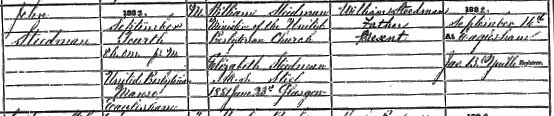 John
Steedman
1882.
September
Fourth
5h 0m P M
United Presbyterian
Manse
Eaglesham
M.
William Steedman
Minister of the United
Presbyterian Church
Elizabeth Steedman
M.S.
1881 June 23rd Glasgow
William Steedman
Father
Present
1882.
September 16th
At Eaglesham
Jas. B. Registrar.